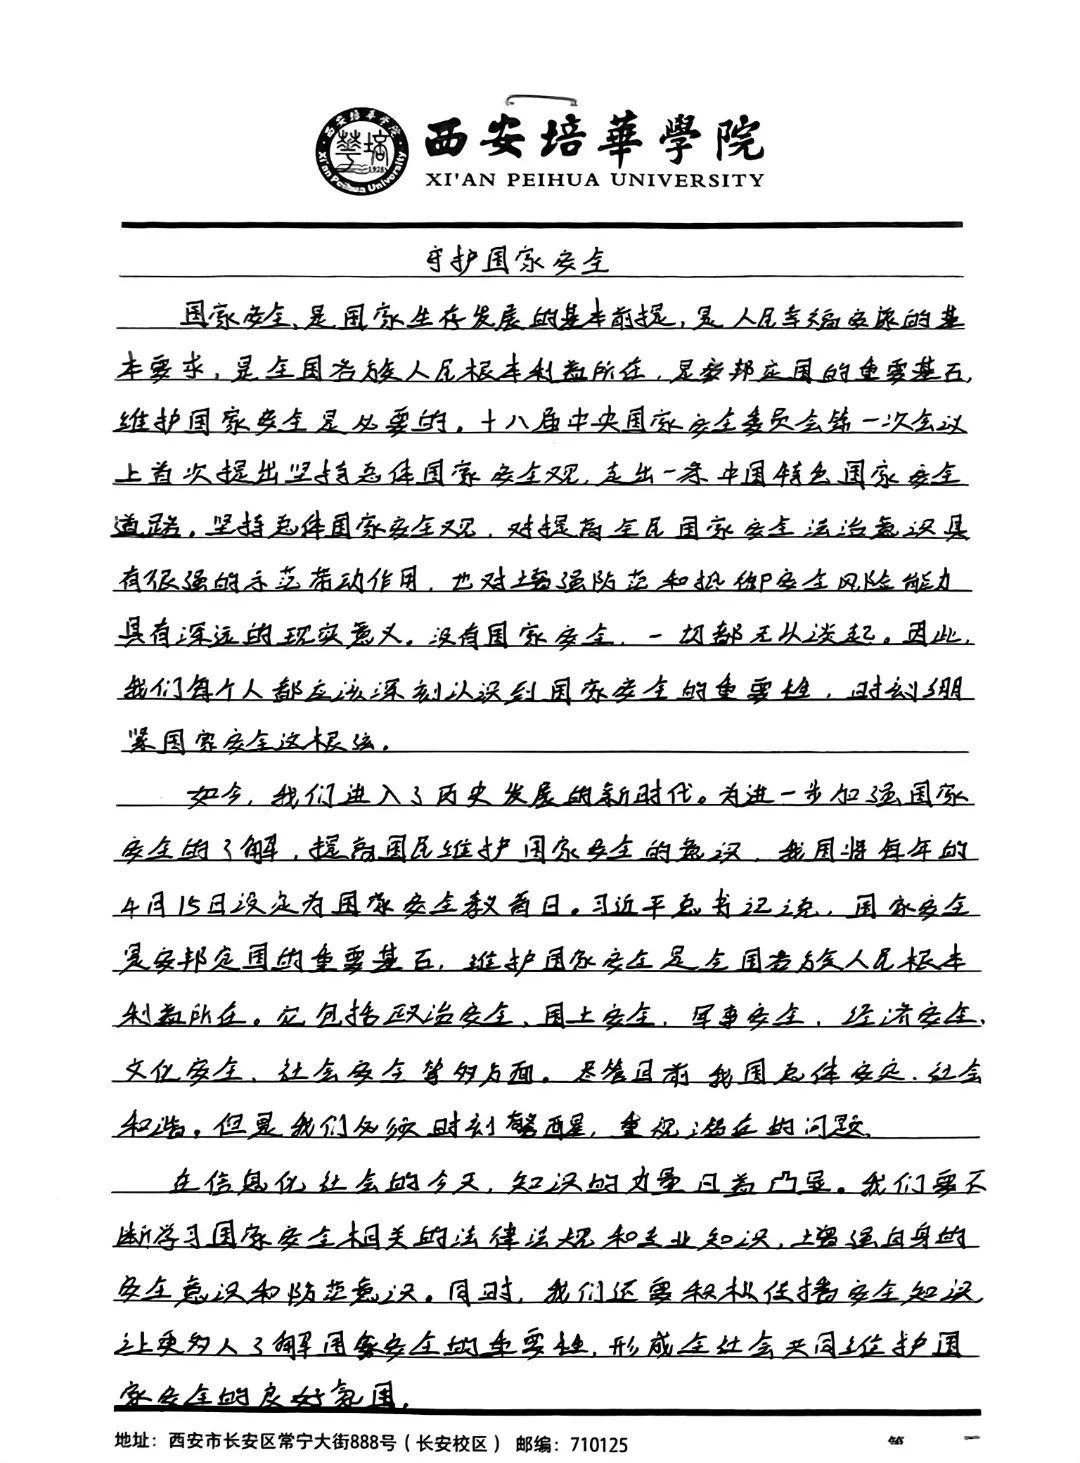 西安培華學院
XI'AN PEIHUA UNIVERSITY
守护国家安全
国家安全,是国家生存发展的基本前提,是人民幸福安康的基
本要求,是全国各族人民根本利益所在,是安邦定国的重要基石,
维护国家安全是必要的。十八届中央国家安全委员会第一次会议
上首次提出坚持总体国家安全观,走出一条中国特色国家安全
道路。坚持总体国家安全观,对提高全民国家安全法治意识具
有很强的示范带动作用,也对增强防范和抵御安全风险能力
具有深远的现实意义。没有国家安全,一切都无从谈起。因此,
我们每个人都应该深刻认识到国家安全的重要性,时刻绷
紧国家安全这根弦。
如今,我们进入了历史发展的新时代。为进一步加强国家
安全的了解,提高国民维护国家安全的意识,我国将每年的
4月15日设定为国家安全教育日。习近平总书记说,国家安全
是安邦定国的重要基石,维护国家安全是全国各族人民根本
利益所在。它包括政治安全、国土安全、军事安全、经济安全、
文化安全、社会安全等多方面。尽管目前我国总体安定、社会
和谐。但是我们必须时刻警醒,重视潜在的问题。
在信息化社会的今天,知识的力量日益凸显。我们要不
断学习国家安全相关的法律法规和专业知识,增强自身的
安全意识和防范意识。同时,我们还要积极传播安全知识,
让更多人了解国家安全的重要性,形成全社会共同维护国
家安全的良好氛围。
地址：西安市长安区常宁大街888号（长安校区） 邮编：710125
第